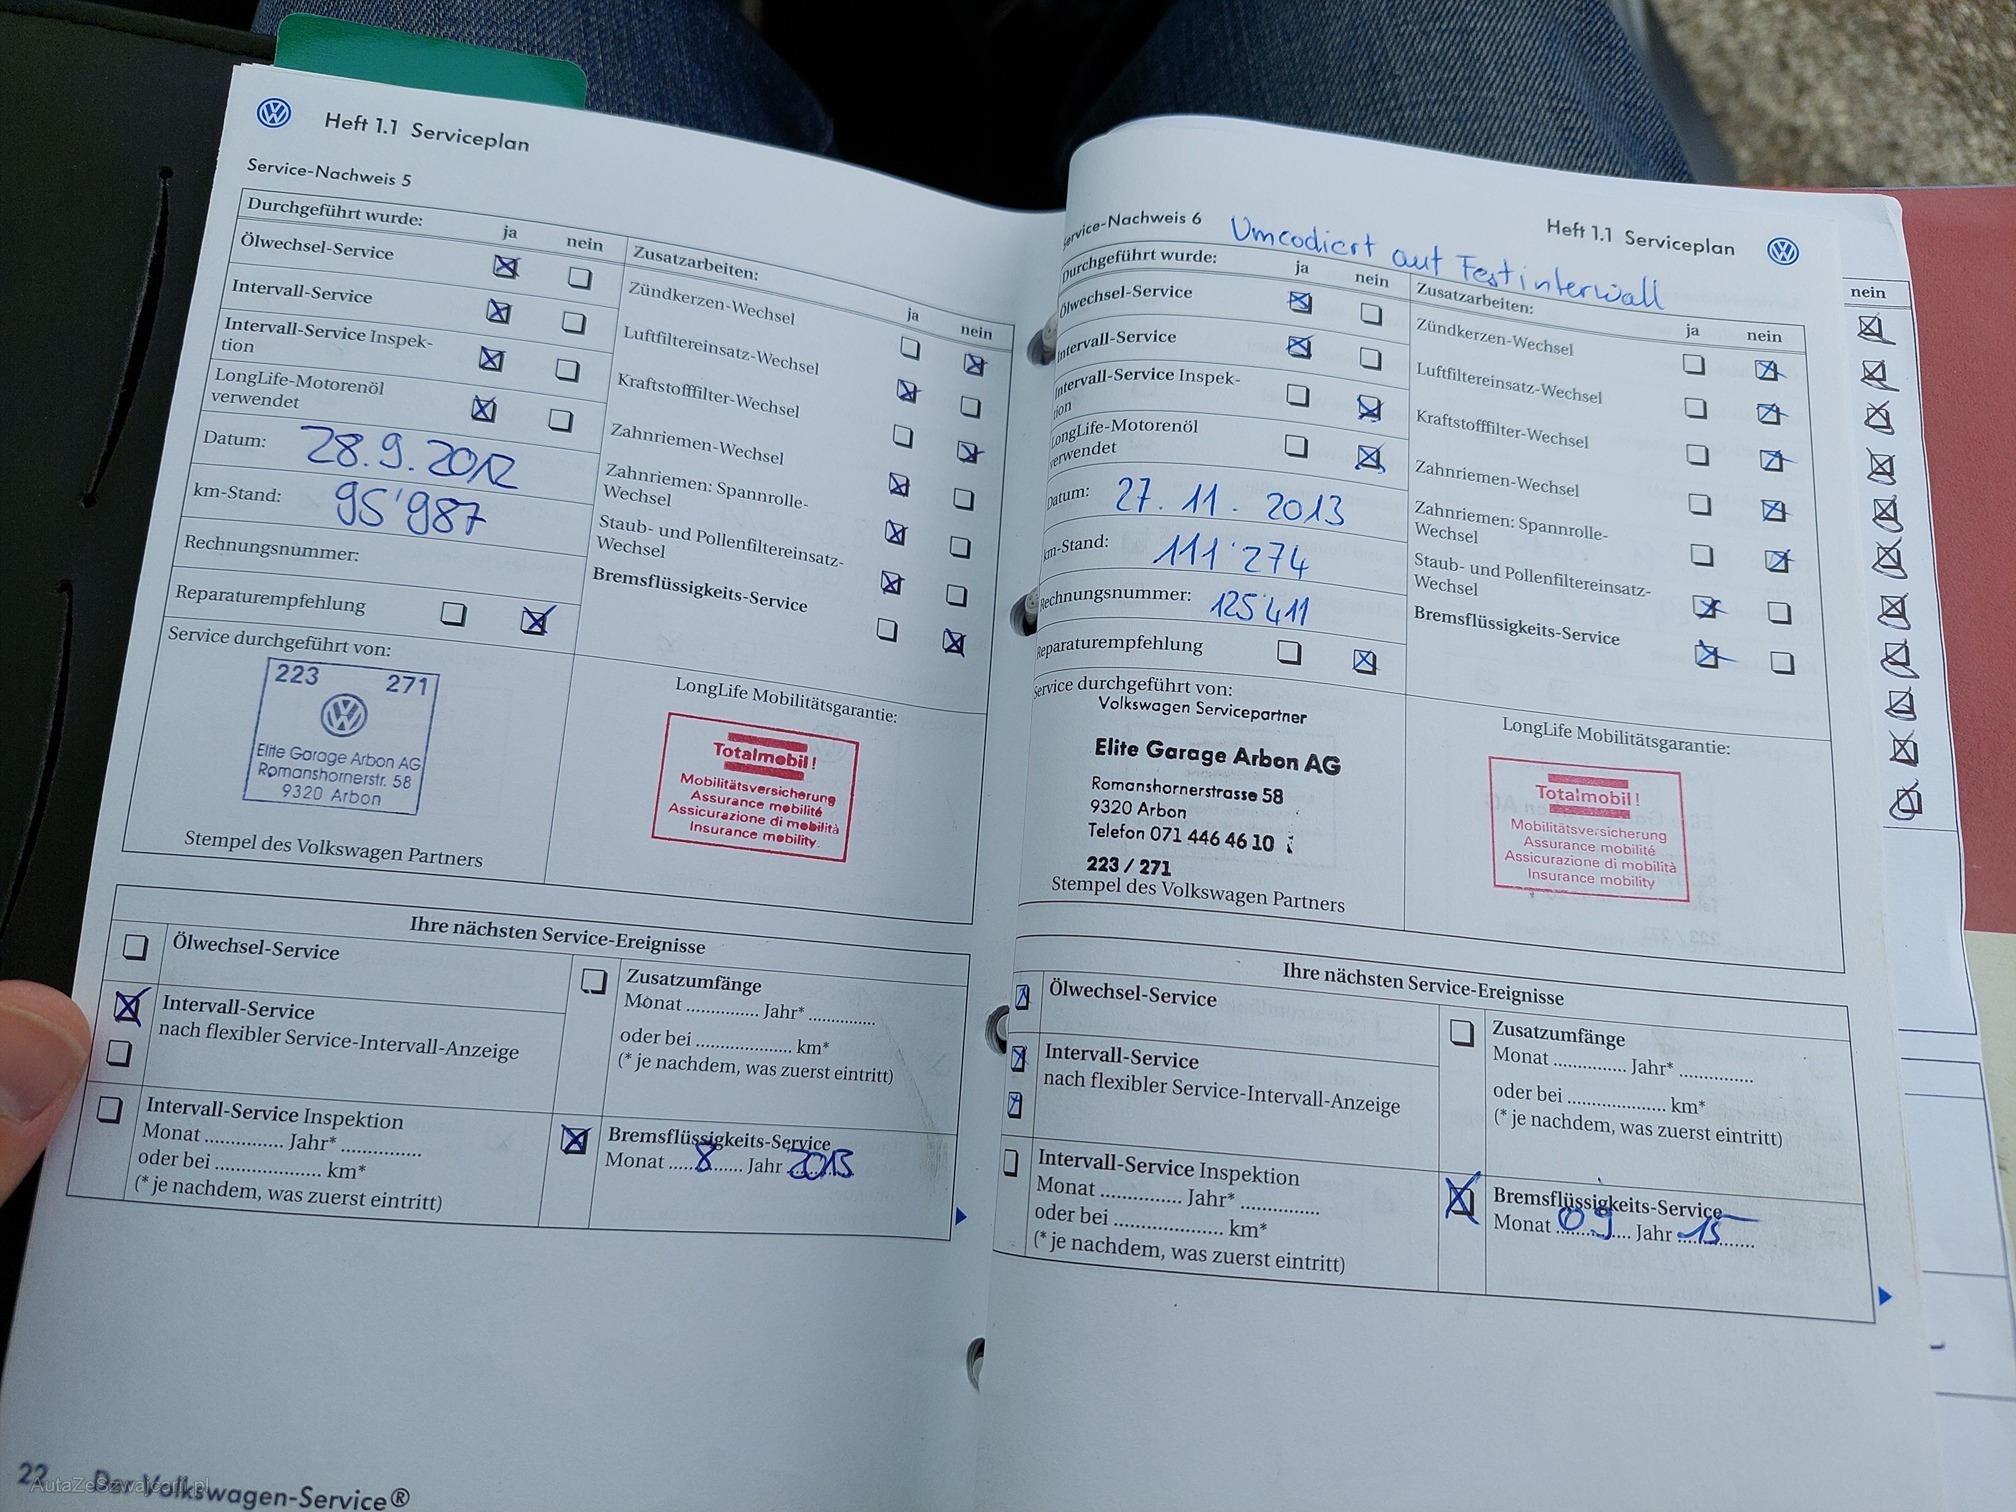 Heft 1.1 Serviceplan
Service-Nachweis 5
Durchgeführt wurde:
ja
nein
Ölwechsel-Service
Intervall-Service
Intervall-Service Inspek-
tion
LongLife-Motorenöl
verwendet
Datum: 28.9.2012
km-Stand: 95'987
Rechnungsnummer:
Reparaturempfehlung
Zusatzarbeiten:
ja
nein
Zündkerzen-Wechsel
Luftfiltereinsatz-Wechsel
Kraftstofffilter-Wechsel
Zahnriemen-Wechsel
Zahnriemen: Spannrolle-
Wechsel
Staub- und Pollenfiltereinsatz-
Wechsel
Bremsflüssigkeits-Service
Service durchgeführt von:
223 271
Elite Garage Arbon AG
Romanshornerstr. 58
9320 Arbon
Stempel des Volkswagen Partners
LongLife Mobilitätsgarantie:
Totalmobil!
Mobilitätsversicherung
Assurance mobilité
Assicurazione di mobilità
Insurance mobility
Ihre nächsten Service-Ereignisse
Ölwechsel-Service
Intervall-Service
nach flexibler Service-Intervall-Anzeige
Intervall-Service Inspektion
Monat ............... Jahr* ...............
oder bei .................... km*
(* je nachdem, was zuerst eintritt)
Zusatzumfänge
Monat .............. Jahr* .............
oder bei ................... km*
(* je nachdem, was zuerst eintritt)
Bremsflüssigkeits-Service
Monat 8 Jahr 2013
22 Der Volkswagen-Service®
AutaZeSzwajcarii.pl
Service-Nachweis 6
Umcodiert auf Festinterwall
Heft 1.1 Serviceplan
Durchgeführt wurde:
ja
nein
Ölwechsel-Service
Intervall-Service
Intervall-Service Inspek-
tion
LongLife-Motorenöl
verwendet
Datum: 27. 11. 2013
km-Stand: 111'274
Rechnungsnummer: 125'411
Reparaturempfehlung
Zusatzarbeiten:
ja
nein
Zündkerzen-Wechsel
Luftfiltereinsatz-Wechsel
Kraftstofffilter-Wechsel
Zahnriemen-Wechsel
Zahnriemen: Spannrolle-
Wechsel
Staub- und Pollenfiltereinsatz-
Wechsel
Bremsflüssigkeits-Service
Service durchgeführt von:
Volkswagen Servicepartner
Elite Garage Arbon AG
Romanshornerstrasse 58
9320 Arbon
Telefon 071 446 46 10
223 / 271
Stempel des Volkswagen Partners
LongLife Mobilitätsgarantie:
Totalmobil!
Mobilitätsversicherung
Assurance mobilité
Assicurazione di mobilità
Insurance mobility
Ihre nächsten Service-Ereignisse
Ölwechsel-Service
Intervall-Service
nach flexibler Service-Intervall-Anzeige
Intervall-Service Inspektion
Monat ............... Jahr* ...............
oder bei .................... km*
(* je nachdem, was zuerst eintritt)
Zusatzumfänge
Monat .............. Jahr* .............
oder bei ................... km*
(* je nachdem, was zuerst eintritt)
Bremsflüssigkeits-Service
Monat 09 Jahr 15
nein